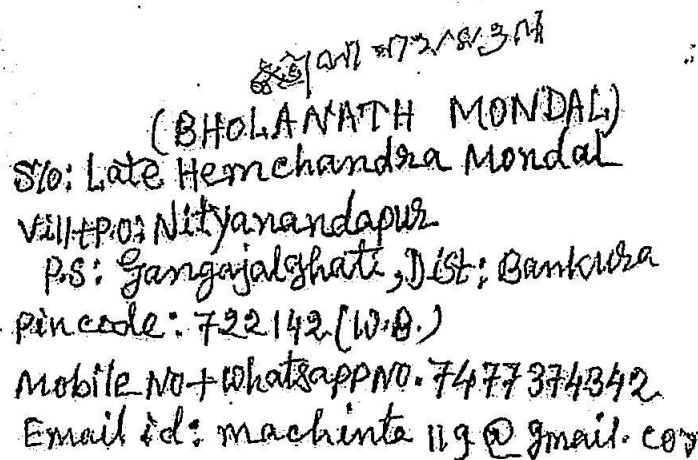 (BHOLANATH MONDAL)
S/o: Late Hemchandra Mondal
Vill+P.O: Nityanandapur
P.S: Gangajalghati, Dist: Bankura
Pincode: 722142 (W.B.)
Mobile No+Whatsapp No. 7477374342
Email id: machinta 119@gmail.com